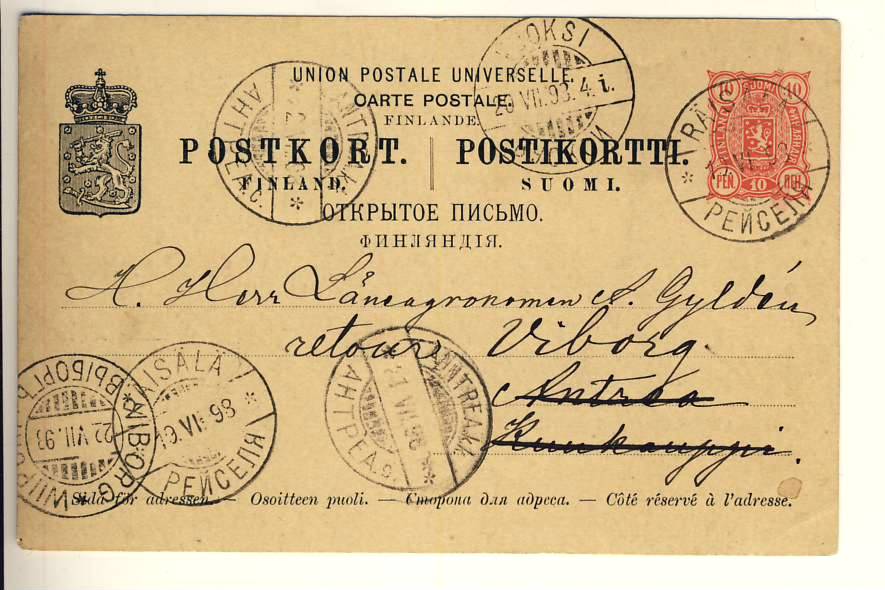 UNION POSTALE UNIVERSELLE.
CARTE POSTALE.
FINLANDE.
POSTKORT. POSTIKORTTI.
FINLAND. SUOMI.
ОТКРЫТОЕ ПИСЬМО.
ФИНЛЯНДІЯ.
10 SUOMI 10
FINLAND
PEN 10 ПЕН
РЕЙСЕЛЯ
20 VII. 93. 4 i.
ANTREA
АНТРЕА С.
H. Herr Länsagronomen A. Gyldén
retour Viborg.
Antrea
Kunkauppi.
ВЫБОРГЪ
22 VII. 93
VIBORG
WIIPURI
ISALA
19. VII 93
РЕЙСЕЛЯ
ANTREA
21 VII 93
АНТРЕА С.
Sida för adressen. — Osoitteen puoli. — Сторона для адреса. — Côté réservé à l'adresse.